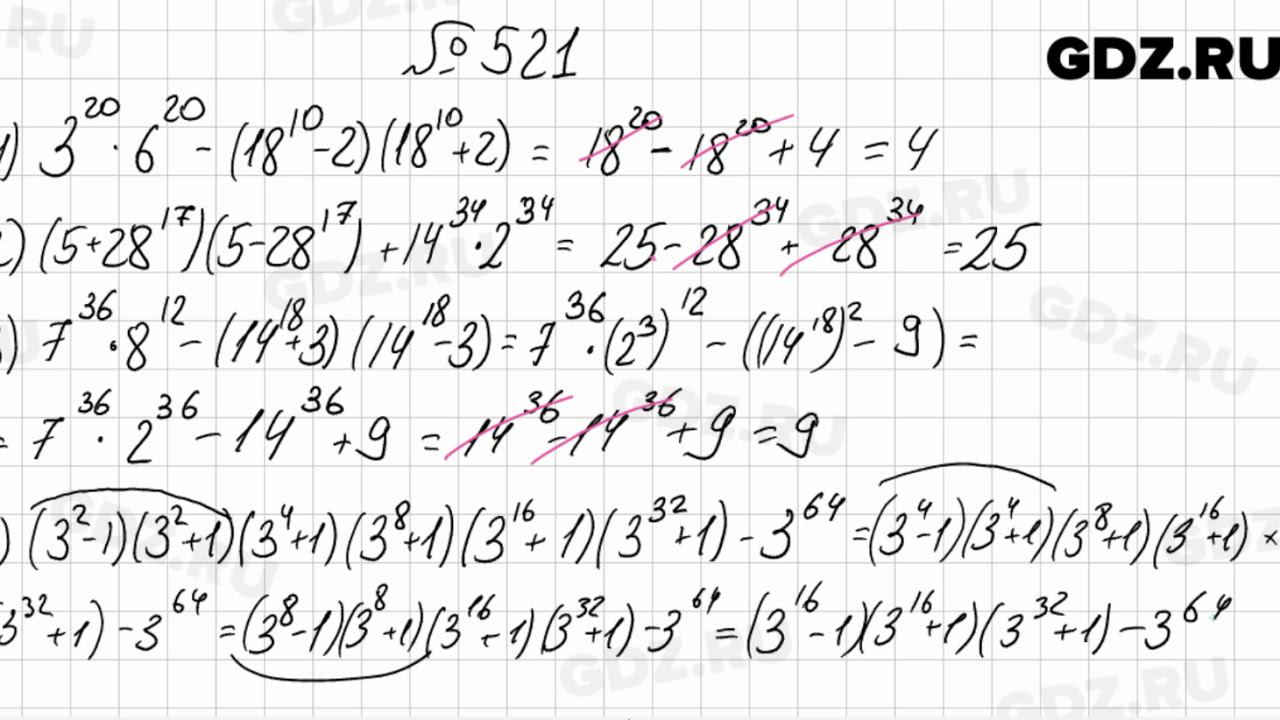 № 521
GDZ.RU
) 3^20 · 6^20 - (18^10 - 2)(18^10 + 2) = 18^20 - 18^20 + 4 = 4
) (5 + 28^17)(5 - 28^17) + 14^34 · 2^34 = 25 - 28^34 + 28^34 = 25
) 7^36 · 8^12 - (14^18 + 3)(14^18 - 3) = 7^36 · (2^3)^12 - ((14^18)^2 - 9) =
= 7^36 · 2^36 - 14^36 + 9 = 14^36 - 14^36 + 9 = 9
) (3^2 - 1)(3^2 + 1)(3^4 + 1)(3^8 + 1)(3^16 + 1)(3^32 + 1) - 3^64 = (3^4 - 1)(3^4 + 1)(3^8 + 1)(3^16 + 1) ×
3^32 + 1) - 3^64 = (3^8 - 1)(3^8 + 1)(3^16 + 1)(3^32 + 1) - 3^64 = (3^16 - 1)(3^16 + 1)(3^32 + 1) - 3^64